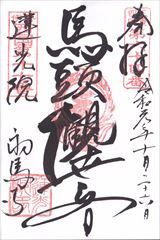 奉拝
令和元年十月二十六日
馬頭観世音
蓮光院
初馬寺